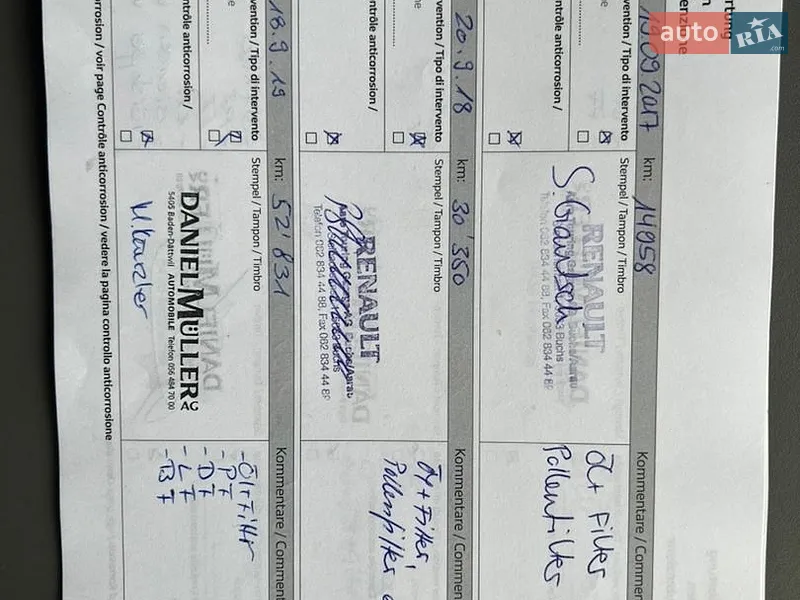 auto RIA.com
rtung
erizione
19.09.2017
km: 14958
vention / Tipo di intervento
ontrôle anticorrosion /
Stempel / Tampon / Timbro
RENAULT
Buchs
Telefon 062 834 44 88, Fax 062 834 44 89
Kommentare / Comment
Öl + Filter
Pollenfilter
20.9.18
km: 30'350
vention / Tipo di intervento
ontrôle anticorrosion /
Stempel / Tampon / Timbro
RENAULT
Telefon 062 834 44 88, Fax 062 834 44 89
Kommentare / Comment
Öl + Filter,
Pollenfilter
18.9.19
km: 52'831
vention / Tipo di intervento
ontrôle anticorrosion /
Stempel / Tampon / Timbro
DANIEL MÜLLER AG
5405 Baden-Dättwil AUTOMOBILE Telefon 056 484 70 00
Kommentare / Comment
- Öl + Filter
- PF
- DF
- LF
- BF
orrosion / voir page Contrôle anticorrosion / vedere la pagina controllo anticorrosione